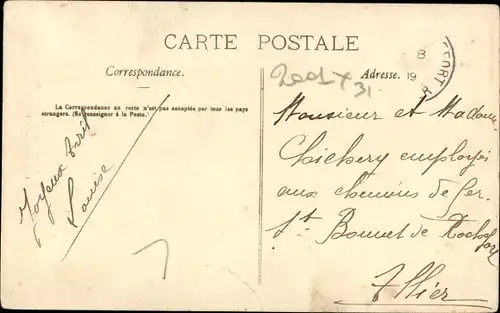 CARTE POSTALE
Correspondance.
Adresse.
8
19
La Correspondance au recto n'est pas acceptée par tous les pays
étrangers. (Se renseigner à la Poste.)
Louise
31
Monsieur et Madame
Chichery employés
aux chemins de fer
St Bonnet de Rochefort
Allier